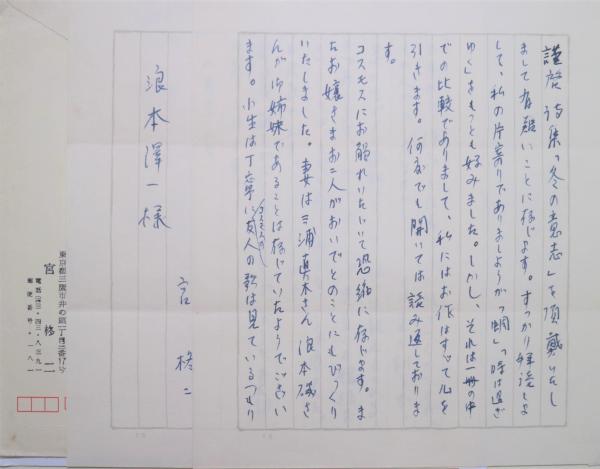 謹啓 詩集「冬の意志」を頂戴いたし
まして有難いことに存じます。すっかり拝読しま
して、私の片寄りでありましょうが「蜩」「時は過ぎ
ゆく」をもっとも好みました。しかし、それは一冊の中
での比較でありまして、私にはお作はすべて心を
引きます。何度でも開いては読み返しておりま
す。
コスモスにお触れいただいて恐縮に存じます。ま
たお嬢さまお二人がおいでとのことにもびっくり
いたしました。妻は三浦真木さん 浪本さ
んが御姉妹であることは存じていたようでござい
ます。小生は丁寧に人の歌は見ているつもり
宮 柊二
浪本澤一様
東京都三鷹市井の頭二丁目三番17号
宮 柊二